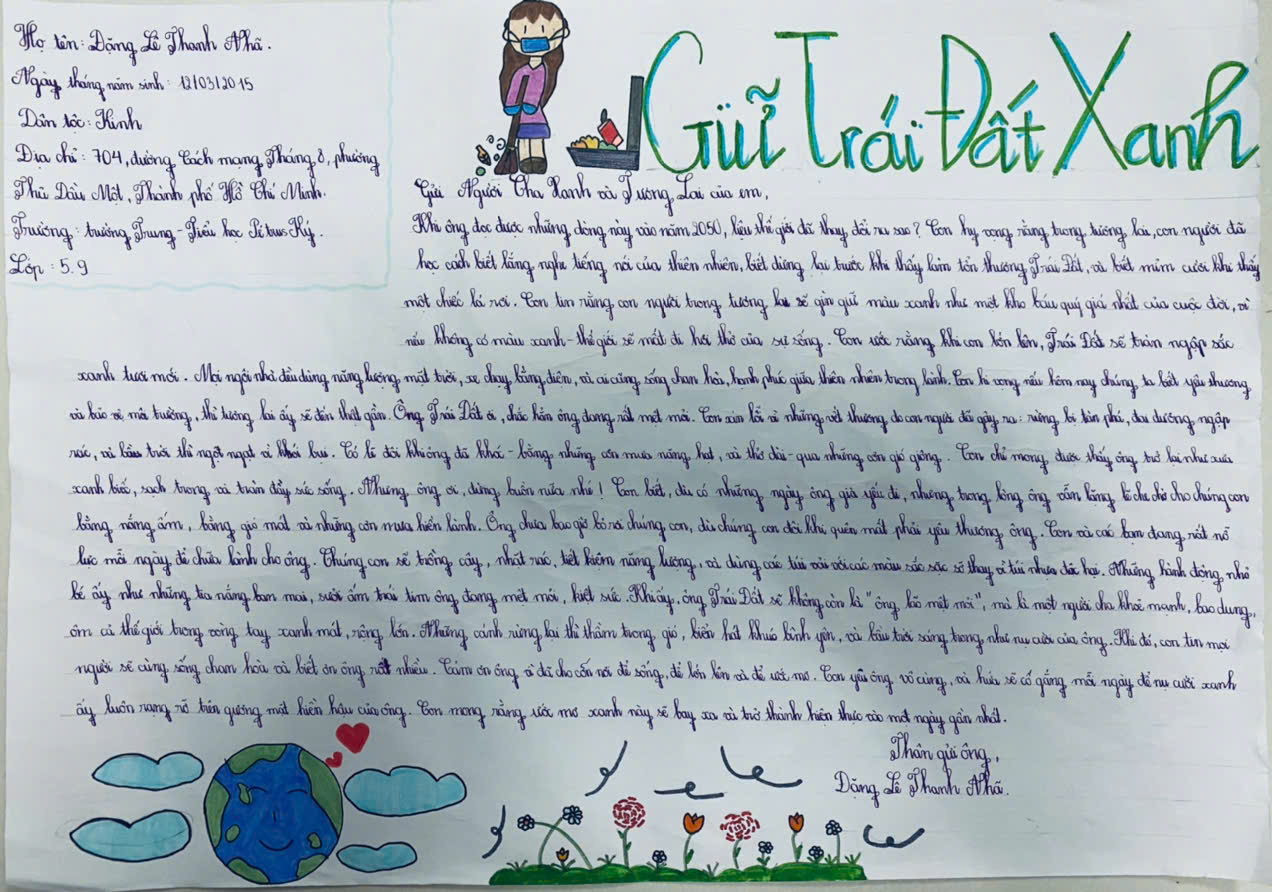 Họ tên: Đặng Lê Thanh Nhã.
Ngày tháng năm sinh: 12/03/2015
Dân tộc: Kinh
Địa chỉ: 704, đường Cách mạng Tháng 8, phường
Thủ Dầu Một, Thành phố Hồ Chí Minh.
Trường: trường Trung - Tiểu học Pétrus Ký.
Lớp: 5.9
Giữ Trái Đất Xanh
Gửi Người Cha Xanh và Tương Lai của em,
Khi ông đọc được những dòng này vào năm 2050, liệu thế giới đã thay đổi ra sao? Con hy vọng rằng trong tương lai, con người đã
học cách biết lắng nghe tiếng nói của thiên nhiên, biết dừng lại trước khi thấy làm tổn thương Trái Đất, và biết mỉm cười khi thấy
một chiếc lá rơi. Con tin rằng con người trong tương lai sẽ gìn giữ màu xanh như một kho báu quý giá nhất của cuộc đời, vì
nếu không có màu xanh - thế giới sẽ mất đi hơi thở của sự sống. Con ước rằng khi con lớn lên, Trái Đất sẽ tràn ngập sắc
xanh tươi mới. Mọi ngôi nhà đều dùng năng lượng mặt trời, xe chạy bằng điện, và ai cũng sống chan hòa, hạnh phúc giữa thiên nhiên trong lành. Con hi vọng nếu hôm nay chúng ta biết yêu thương
và bảo vệ môi trường, thì tương lai ấy sẽ đến thật gần. Ông Trái Đất ơi, chắc hẳn ông đang rất mệt mỏi. Con xin lỗi vì những vết thương do con người đã gây ra: rừng bị tàn phá, đại dương ngập
rác, và bầu trời thì ngột ngạt vì khói bụi. Có lẽ đôi khi ông đã khóc - bằng những cơn mưa nặng hạt, và thở dài - qua những cơn gió giông. Con chỉ mong được thấy ông trở lại như xưa
xanh biếc, sạch trong và tràn đầy sức sống. Nhưng ông ơi, đừng buồn nữa nhé! Con biết, dù có những ngày ông già yếu đi, nhưng trong lòng ông vẫn lặng lẽ che chở cho chúng con
bằng nắng ấm, bằng gió mát và những cơn mưa hiền lành. Ông chưa bao giờ bỏ rơi chúng con, dù chúng con đôi khi quên mất phải yêu thương ông. Con và các bạn đang rất nỗ
lực mỗi ngày để chữa lành cho ông. Chúng con sẽ trồng cây, nhặt rác, tiết kiệm năng lượng, và dùng các túi vải với các màu sắc sặc sỡ thay vì túi nhựa độc hại. Những hành động nhỏ
bé ấy như những tia nắng ban mai, sưởi ấm trái tim ông đang mệt mỏi, kiệt sức. Khi ấy, ông Trái Đất sẽ không còn là "ông lão mệt mỏi", mà là một người cha khoẻ mạnh, bao dung,
ôm cả thế giới trong vòng tay xanh mát, rộng lớn. Những cánh rừng lại thì thầm trong gió, biển hát khúc bình yên, và bầu trời sáng trong như nụ cười của ông. Khi đó, con tin mọi
người sẽ cùng sống chan hoà và biết ơn ông rất nhiều. Cảm ơn ông vì đã cho cốn nơi để sống, để lớn lên và để ước mơ. Con yêu ông vô cùng, và hứa sẽ cố gắng mỗi ngày để nụ cười xanh
ấy luôn rạng rỡ trên gương mặt hiền hậu của ông. Con mong rằng ước mơ xanh này sẽ bay xa và trở thành hiện thực vào một ngày gần nhất.
Thân gửi ông,
Đặng Lê Thanh Nhã.